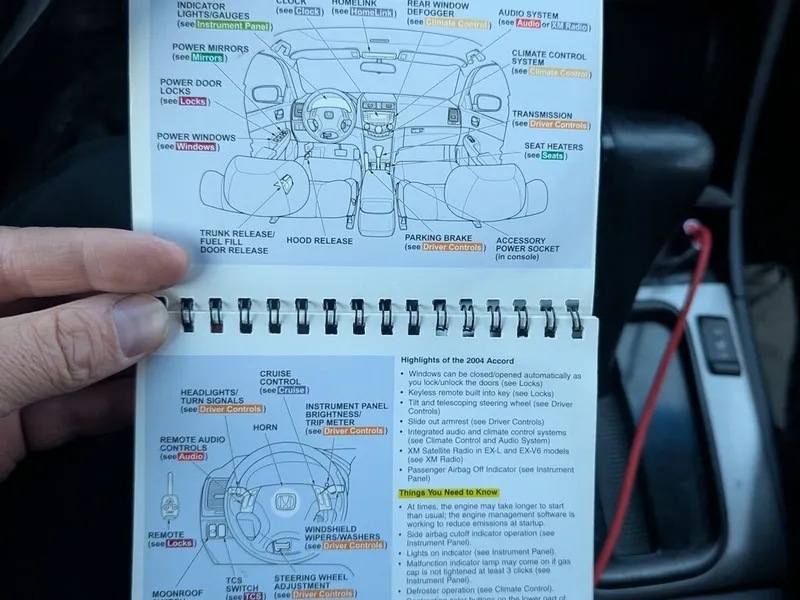 INDICATOR
LIGHTS/GAUGES
(see Instrument Panel)
CLOCK
(see Clock)
HOMELINK
(see HomeLink)
REAR WINDOW
DEFOGGER
(see Climate Control)
AUDIO SYSTEM
(see Audio or XM Radio)
POWER MIRRORS
(see Mirrors)
CLIMATE CONTROL
SYSTEM
(see Climate Control)
POWER DOOR
LOCKS
(see Locks)
TRANSMISSION
(see Driver Controls)
POWER WINDOWS
(see Windows)
SEAT HEATERS
(see Seats)
TRUNK RELEASE/
FUEL FILL
DOOR RELEASE
HOOD RELEASE
PARKING BRAKE
(see Driver Controls)
ACCESSORY
POWER SOCKET
(in console)
CRUISE
CONTROL
(see Cruise)
HEADLIGHTS/
TURN SIGNALS
(see Driver Controls)
INSTRUMENT PANEL
BRIGHTNESS/
TRIP METER
(see Driver Controls)
HORN
REMOTE AUDIO
CONTROLS
(see Audio)
REMOTE
(see Locks)
WINDSHIELD
WIPERS/WASHERS
(see Driver Controls)
MOONROOF
TCS
SWITCH
(see TCS)
STEERING WHEEL
ADJUSTMENT
(see Driver Controls)
Highlights of the 2004 Accord
• Windows can be closed/opened automatically as
you lock/unlock the doors (see Locks)
• Keyless remote built into key (see Locks)
• Tilt and telescoping steering wheel (see Driver
Controls)
• Slide out armrest (see Driver Controls)
• Integrated audio and climate control systems
(see Climate Control and Audio System)
• XM Satellite Radio in EX-L and EX-V6 models
(see XM Radio)
• Passenger Airbag Off Indicator (see Instrument
Panel)
Things You Need to Know
• At times, the engine may take longer to start
than usual; the engine management software is
working to reduce emissions at startup.
• Side airbag cutoff indicator operation (see
Instrument Panel).
• Lights on indicator (see Instrument Panel).
• Malfunction indicator lamp may come on if gas
cap is not tightened at least 3 clicks (see
Instrument Panel).
• Defroster operation (see Climate Control).